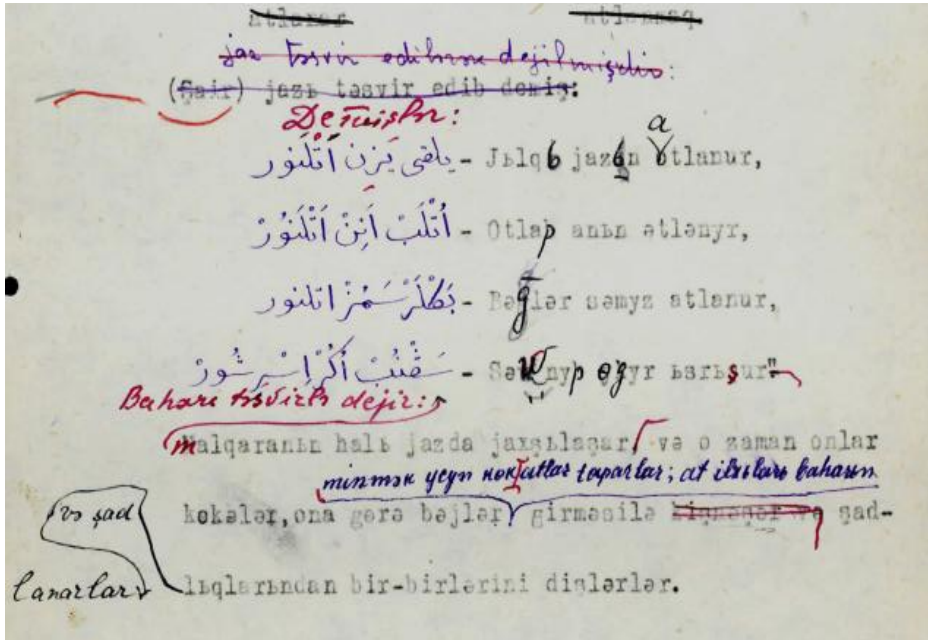 atlanar atlanmaq
jaz təsvir edilərək dejilmişdir:
(Şair) jazь təsvir edib demiş:
Demişlər:
يلقى يَزِنْ اَتْلَنور - Jьlqь jazьn atlanur,
اُتْلَبْ اَنِنْ اَتْلَنُورْ - Otlap anьn ətlənyr,
بَكْلَرْ سَمُزْ اتلنور - Bəglər səmyz atlanur,
سَڤْنُبْ اُكُرْ اِسْرِشُورْ - Səvnyp ɵgyr ьsrьşur"
Baharь təsvirlə dejir:
malqaranьn halь jazda jaxşьlaşar, və o zaman onlar
minmək ycyn kɵk atlar taparlar; at ilxьlarь baharьn
və şad kɵkələr, ona gɵrə bəjlər girməsilə kişnəşər və şad-
lanarlar lьqlarьndan bir-birlərini dişlərlər.